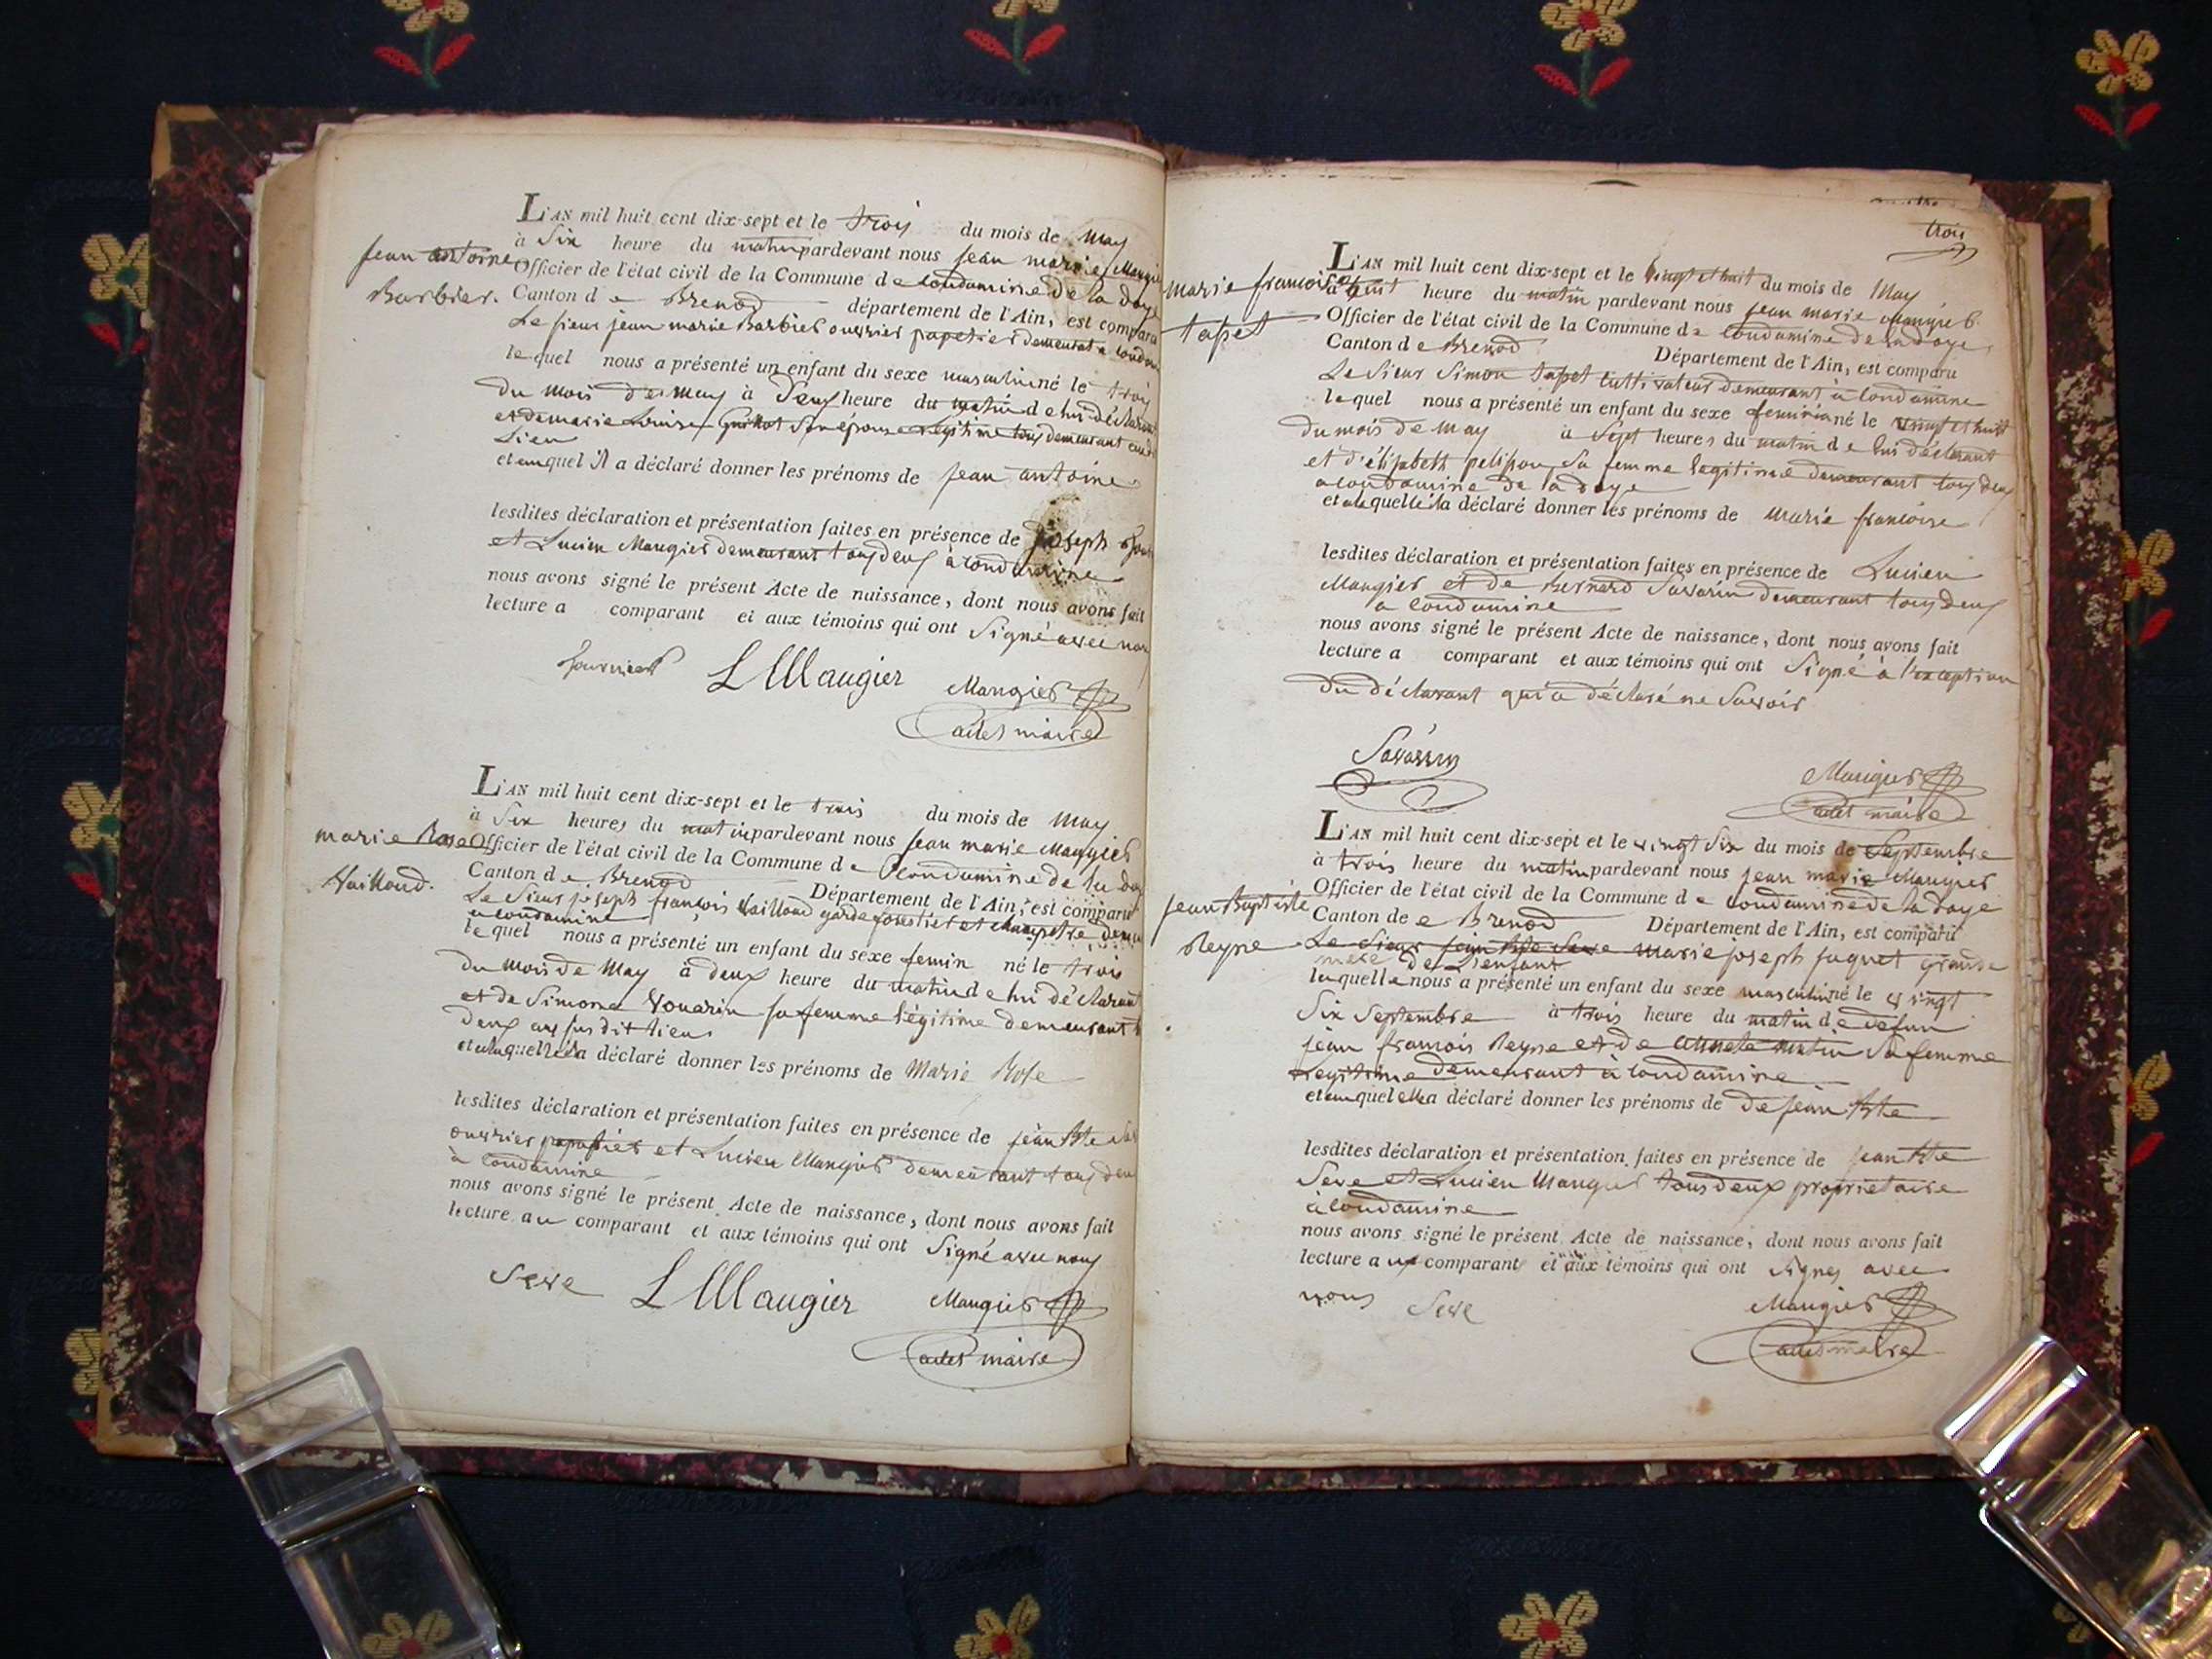 L'AN mil huit cent dix-sept et le trois du mois de May
à Six heure du matin pardevant nous jean marie Maugier
Jean antoine
Barbier.
Officier de l'état civil de la Commune de Condamine de la doye
Canton de Brenod département de l'Ain, est comparu
Le sieur jean marie Barbier ouvrier papetier demeurant a
lequel nous a présenté un enfant du sexe masculin né le trois
du mois de May à Deux heure du matin de lui déclarant
et de marie Louise Guillot Son épouse legitime tous demeurant
Lieu
et auquel il a déclaré donner les prénoms de jean antoine
lesdites déclaration et présentation faites en présence de joseph
et Lucien Maugier demeurant tous deux à Condamine
nous avons signé le présent Acte de naissance, dont nous avons fait
lecture a comparant et aux témoins qui ont Signé avec nous
fournier LMaugier Maugier
adet maire
L'AN mil huit cent dix-sept et le trois du mois de May
à Six heures du matin pardevant nous jean marie Maugier
marie Rose
Vailloud.
Officier de l'état civil de la Commune de Condamine de la doy
Canton de Brenod Département de l'Ain, est comparu
Le Sieur joseph françois Vailloud garde forestier et champetre
a condamine
lequel nous a présenté un enfant du sexe femin né le trois
du mois de May à deux heure du matin de lui déclarant
et de Simone Vouarin sa femme légitime demeurant
deux au susdit lieu
et a laquelle il a déclaré donner les prénoms de Marie Rose
lesdites déclaration et présentation faites en présence de jean Bte
ouvrier papetier et Lucien Maugier demeurant tous deu
à Condamine
nous avons signé le présent Acte de naissance, dont nous avons fait
lecture au comparant et aux témoins qui ont Signé avec nous
Seve LMaugier Maugier
adet maire
trois
L'AN mil huit cent dix-sept et le vingt et huit du mois de May
à huit heure du matin pardevant nous jean marie Maugier
marie francoise
tapet
Officier de l'état civil de la Commune de Condamine de la doye
Canton de Brenod Département de l'Ain, est comparu
Le Sieur Simon tapet cultivateur demeurant à Condamine
lequel nous a présenté un enfant du sexe feminin né le vingt et huit
du mois de May à Sept heures du matin de lui déclarant
et d'élisabeth pelisson Sa femme legitime demeurant tous deux
a Condamine de la doye
et a laquelle il a déclaré donner les prénoms de marie francoise
lesdites déclaration et présentation faites en présence de Lucien
Maugier et de Bernard Savarin demeurant tous deux
a Condamine
nous avons signé le présent Acte de naissance, dont nous avons fait
lecture a comparant et aux témoins qui ont Signé à l'exception
du déclarant qui a déclaré ne Savoir
Savarin Maugier
adet maire
L'AN mil huit cent dix-sept et le vingt Six du mois de Septembre
à trois heure du matin pardevant nous jean marie Maugier
jean Baptiste
Reyne
Officier de l'état civil de la Commune de Condamine de la doye
Canton de e Brenod Département de l'Ain, est comparu
Le Sieur jean Bte Seve marie joseph juquet grande
mere de L'enfant
laquelle nous a présenté un enfant du sexe masculin né le vingt
Six Septembre à trois heure du matin de defun
jean francois Reyne et de Sa femme
Legitime demeurant à Condamine
et auquel elle a déclaré donner les prénoms de de jean Bte
lesdites déclaration et présentation faites en présence de jean Bte
Seve et Lucien Maugier tous deux proprietaire
à Condamine
nous avons signé le présent Acte de naissance, dont nous avons fait
lecture a comparant et aux témoins qui ont signes avec
nous Seve Maugier
adet maire